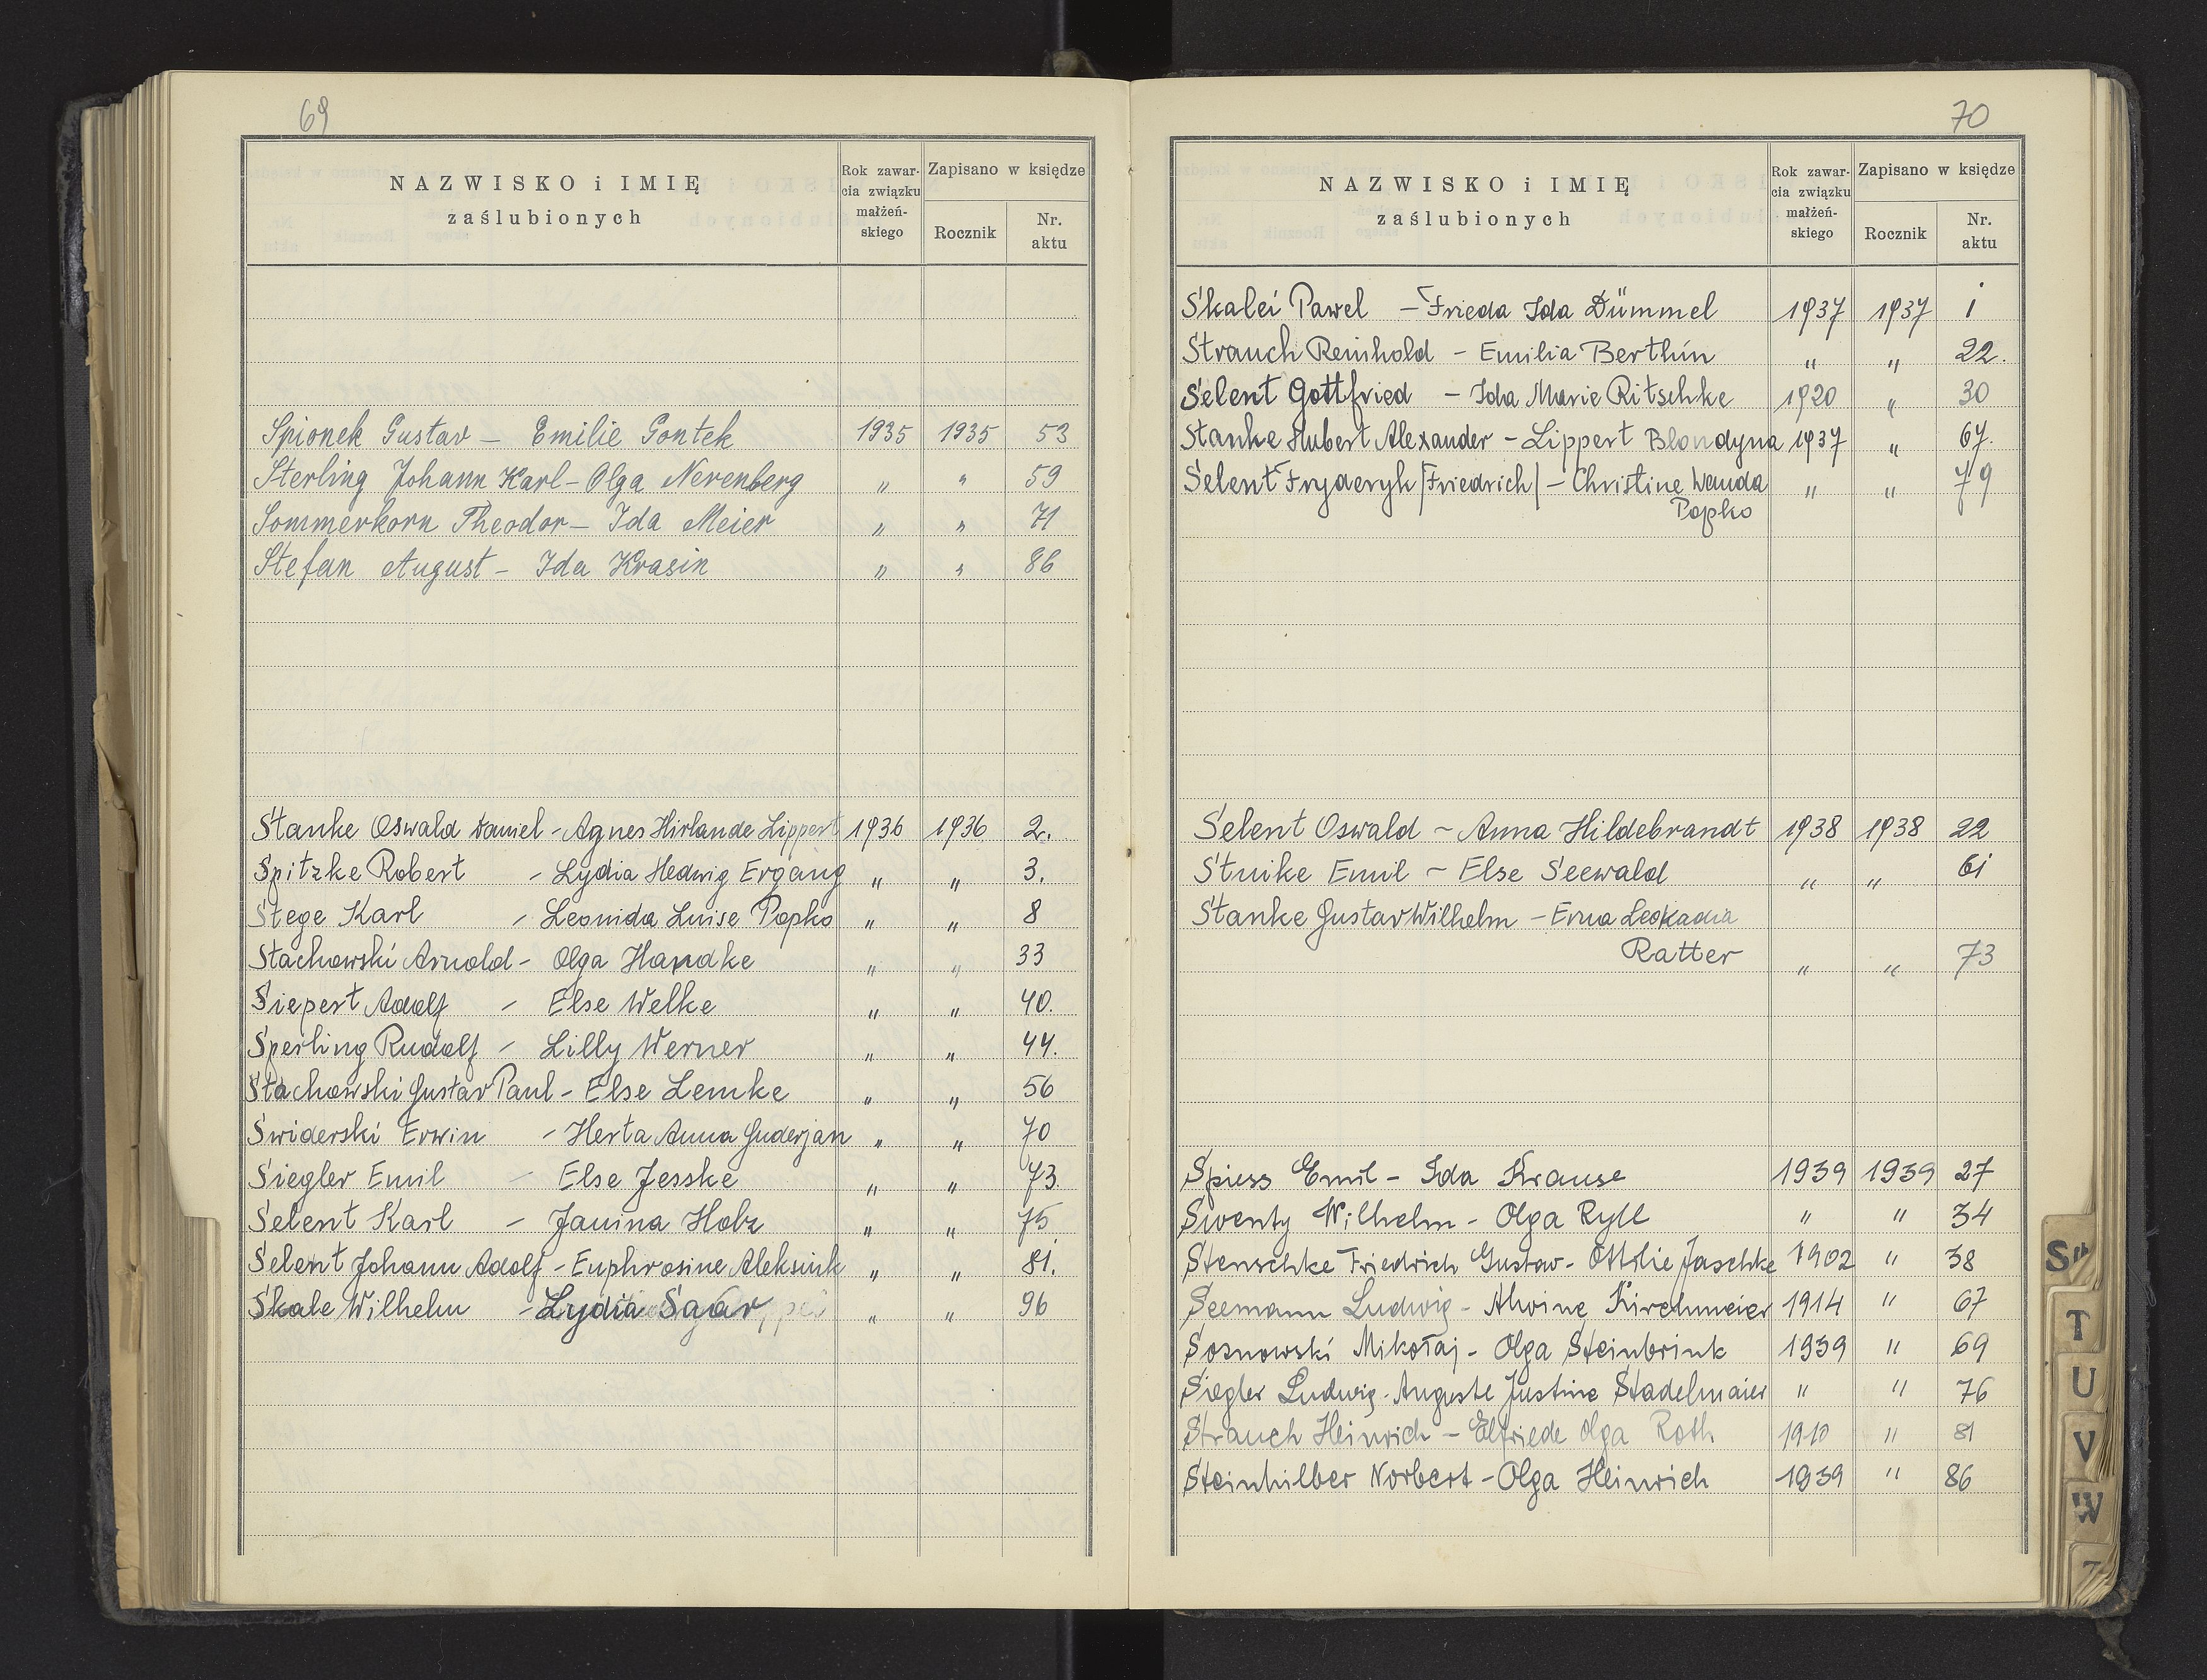 69
NAZWISKO i IMIĘ
zaślubionych
Rok zawar-
cia związku
małżeń-
skiego
Zapisano w księdze
Rocznik
Nr.
aktu
Spionek Gustav - Emilie Gontek 1935 1935 53
Sterling Johann Karl - Olga Nerenberg " " 59
Sommerkorn Theodor - Ida Meier " " 71
Stefan August - Ida Krasin " " 86
Stanke Oswald Daniel - Agnes Hirlande Lippert 1936 1936 2.
Spitzke Robert - Lydia Hedwig Ergang " " 3.
Stege Karl - Leonida Luise Popko " " 8
Stachowski Arnold - Olga Handke " " 33
Siepert Adolf - Else Welke " " 40.
Sperling Rudolf - Lilly Werner " " 44.
Stachowski Gustav Paul - Else Lemke " " 56
Swiderski Erwin - Herta Anna Guderjan " " 70
Siegler Emil - Else Jesske " " 73
Selent Karl - Janina Holz " " 75
Selent Johann Adolf - Euphrosine Aleksiuk " " 81.
Skale Wilhelm - Lydia Saar " " 96
70
NAZWISKO i IMIĘ
zaślubionych
Rok zawar-
cia związku
małżeń-
skiego
Zapisano w księdze
Rocznik
Nr.
aktu
Skalei Pawel - Frieda Ida Dümmel 1937 1937 1
Strauch Reinhold - Emilia Berthin " " 22.
Selent Gottfried - Ida Marie Ritschke 1920 " 30
Stanke Hubert Alexander - Lippert Blondyna 1937 " 67.
Selent Fryderyk /Friedrich/ - Christine Wanda " " 79
Popko
Selent Oswald - Anna Hildebrandt 1938 1938 22
Stuike Emil - Else Seewald " " 61
Stanke Gustav Wilhelm - Erna Leokadia
Ratter " " 73
Spiess Emil - Ida Krause 1939 1939 27
Swenty Wilhelm - Olga Ryll " " 34
Stenschke Friedrich Gustav - Ottilie Jaschke 1902 " 38
Seemann Ludwig - Alwine Kirchmeier 1914 " 67
Sosnowski Mikołaj - Olga Steinbrink 1939 " 69
Siegler Ludwig - Auguste Justine Stadelmaier " " 76
Strauch Heinrich - Elfriede Olga Roth 1910 " 81
Steinhilber Norbert - Olga Heinrich 1939 " 86
S
T
U
V
W